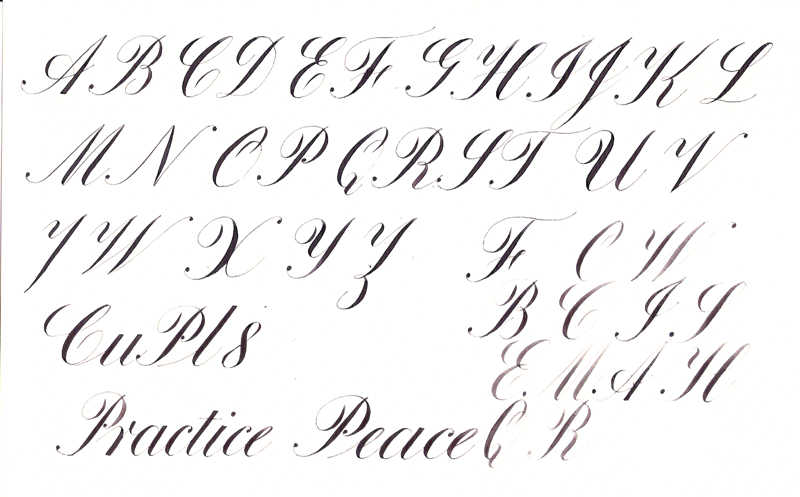 A B C D E F G H I J K L
M N O P Q R S T U V
Y W X Y Z F O W
B C I S
CuPl8
E M A H
Practice Peace Q R